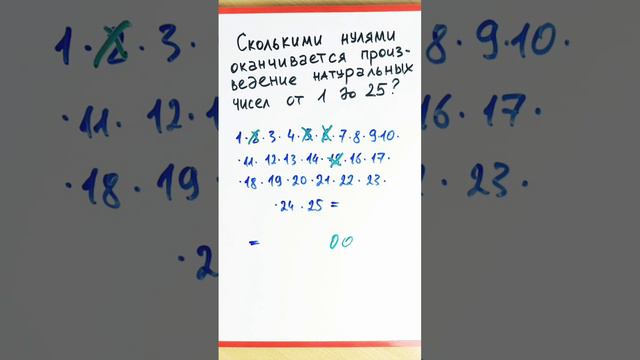 Сколькими нулями
оканчивается произ-
ведение натуральных
чисел от 1 до 25?
1·2·3·4·5·6·7·8·9·10·
·11·12·13·14·15·16·17·
·18·19·20·21·22·23·
·24·25=
= 00